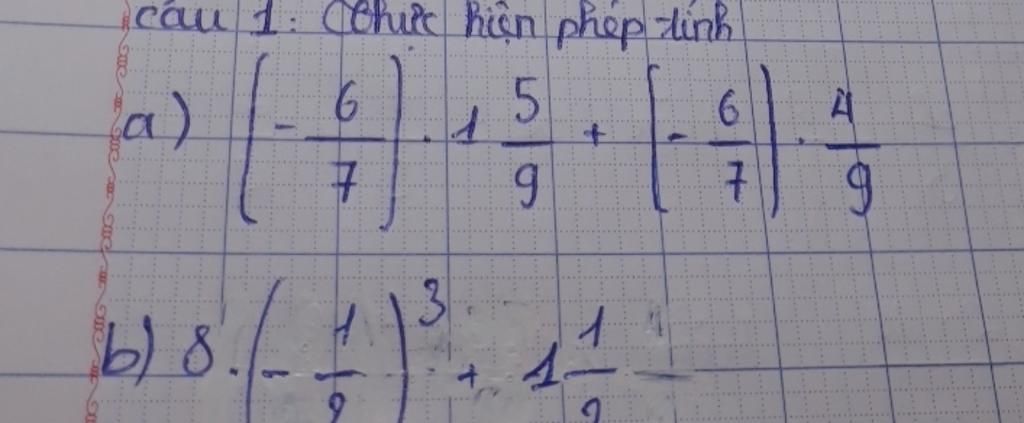 câu 1: Thực hiện phép tính
a) (- 6/7) . 1 5/9 + (- 6/7) . 4/9
b) 8 . (- 1/2)³ + 1 1/2